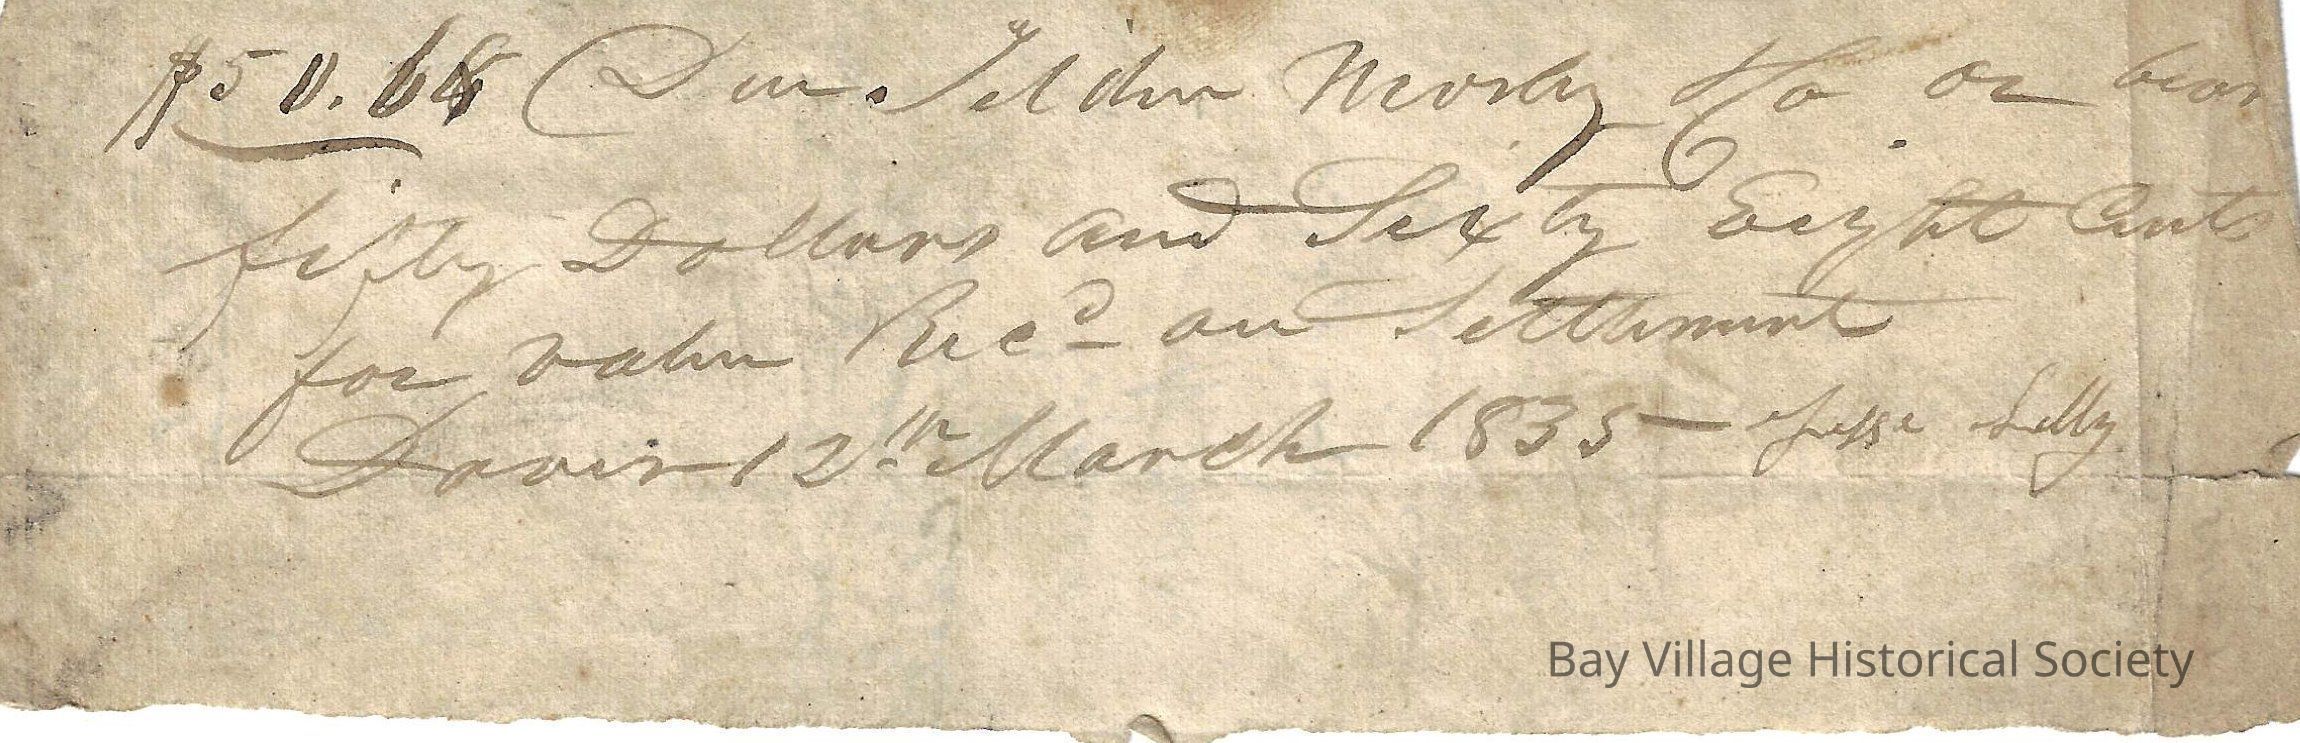 $50.68 Due Selden Mosley & Co. or bear
fifty Dollars and Sixty Eight Cents
for value Recd on Settlement
Dover 12th March 1835 — Jesse Lilly
Bay Village Historical Society